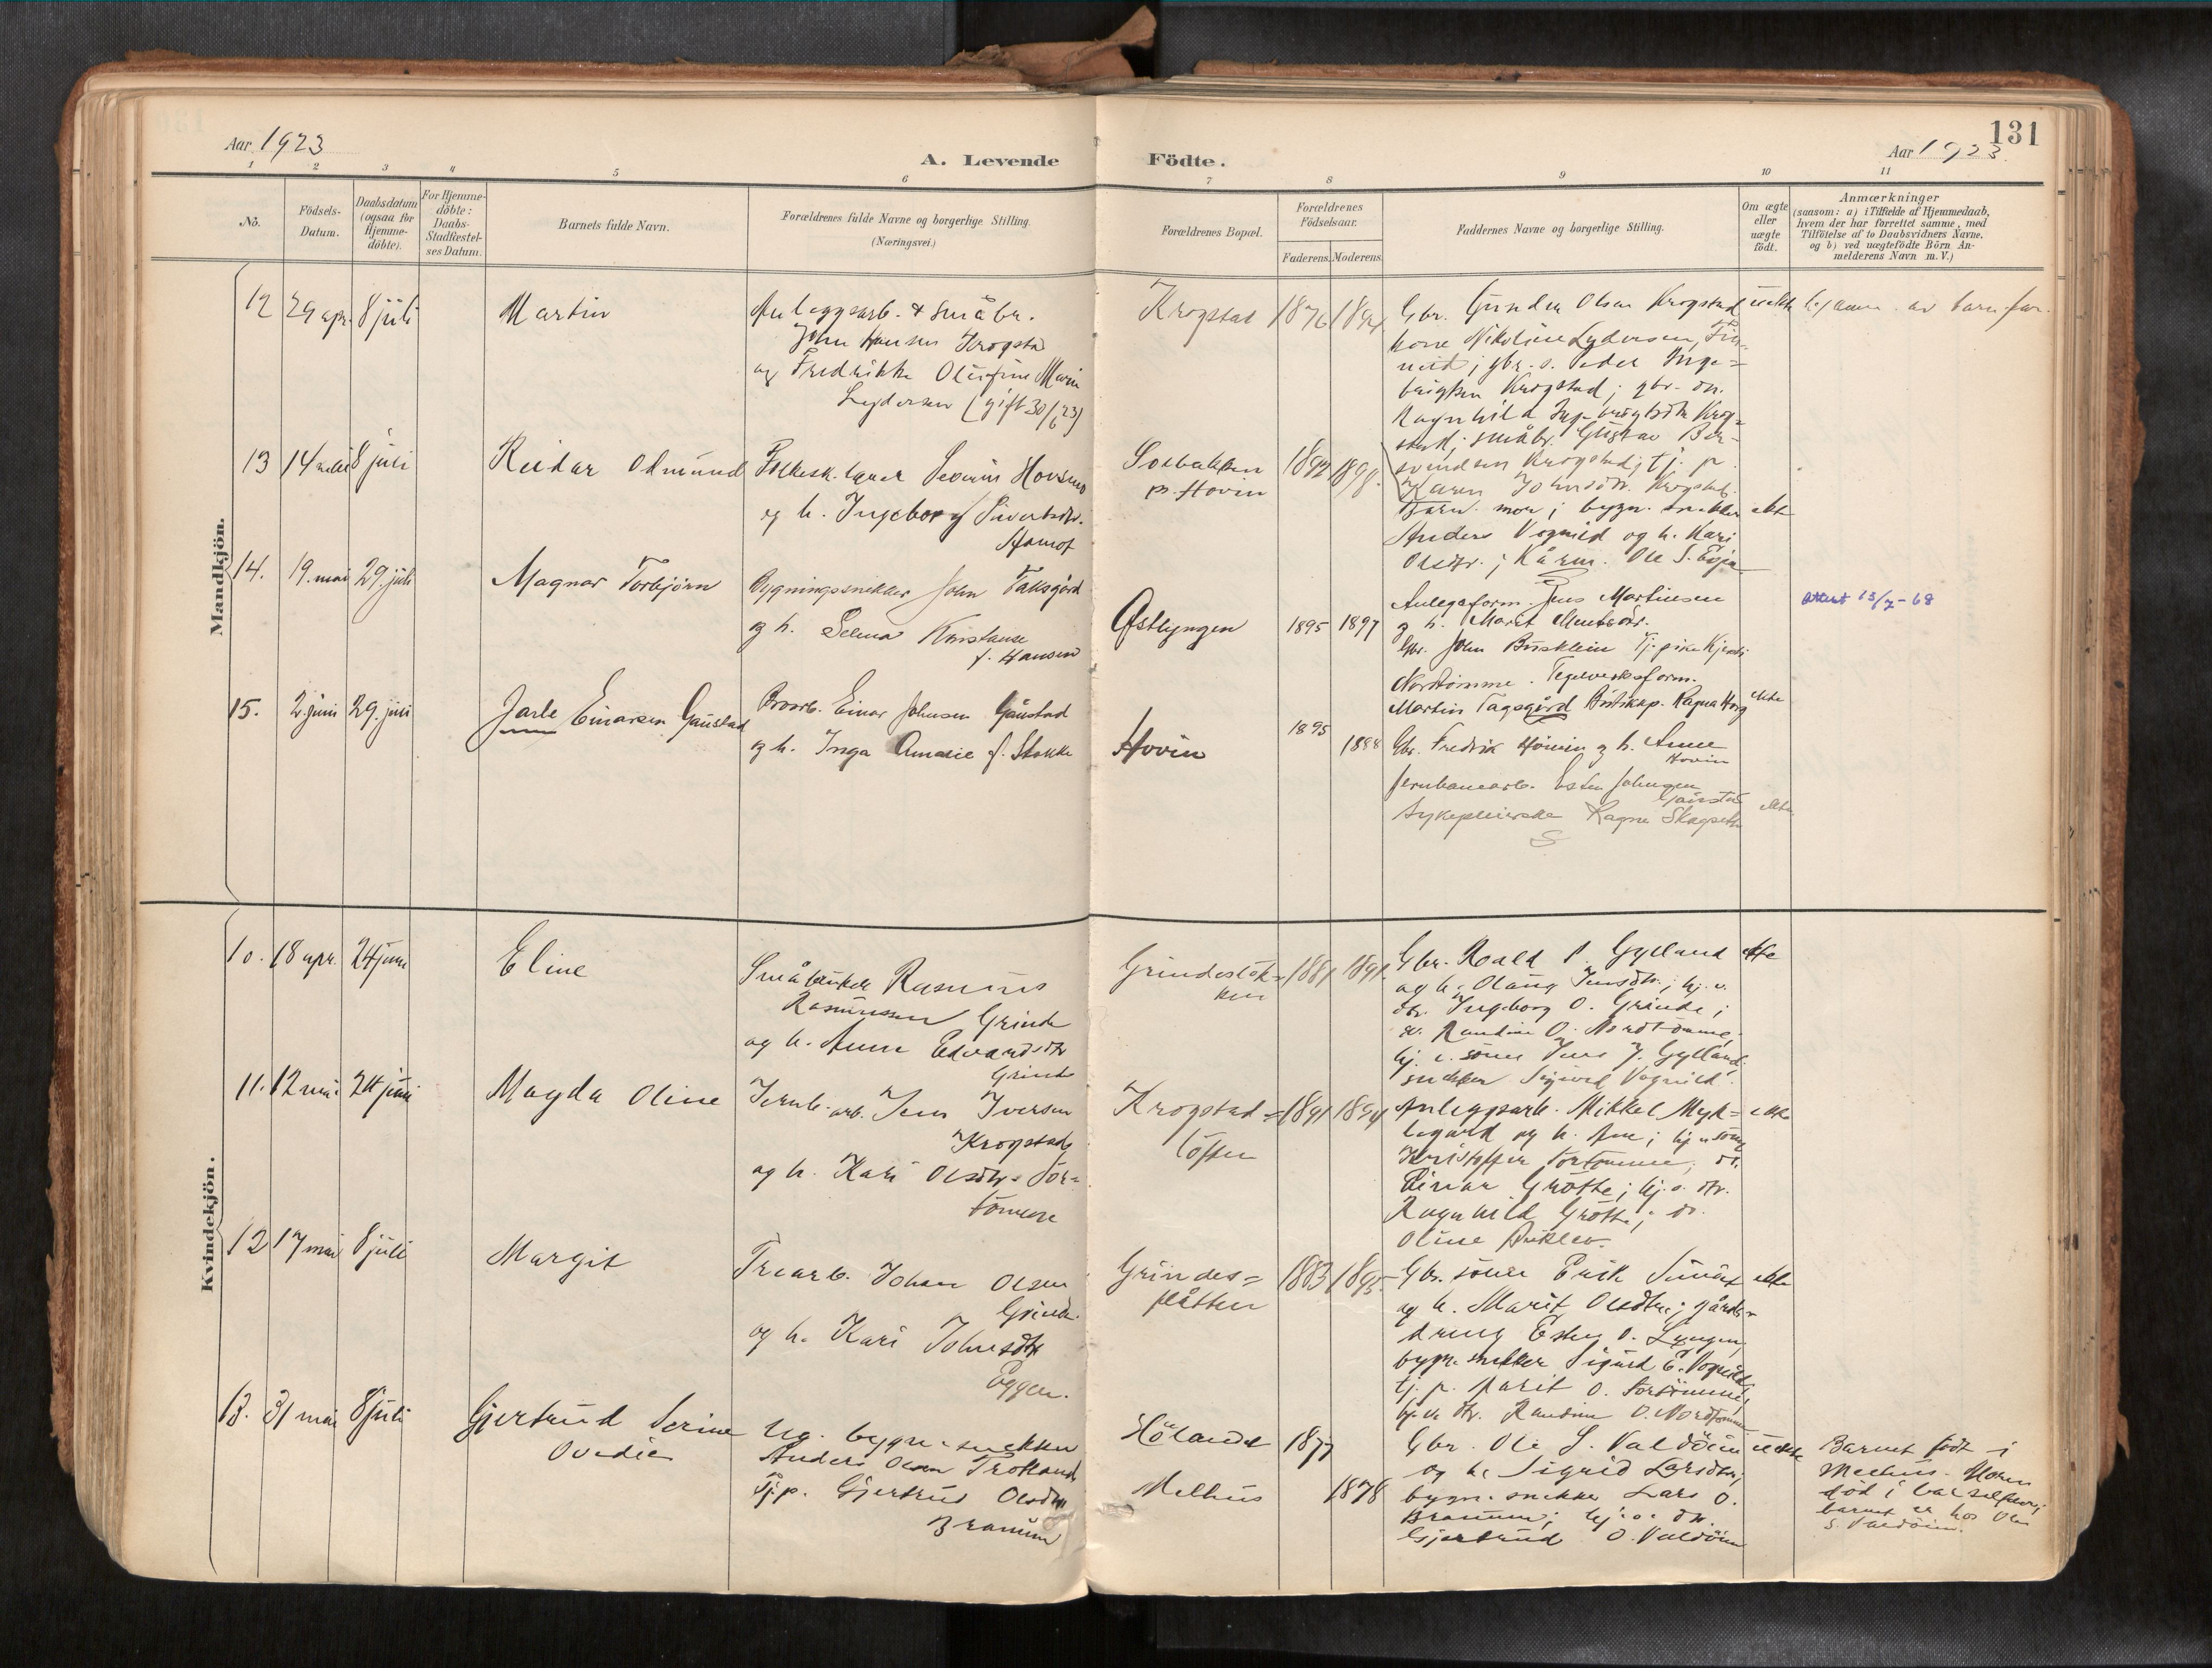 131
Aar 1923
A. Levende Födte.
Aar 1923.
1 2 3 4 5 6 7 8 9 10 11
No.
Födsels-Datum.
Daabsdatum (ogsaa för Hjemme-döbte).
For Hjemme-döbte: Daabs-Stadfæstel-ses Datum.
Barnets fulde Navn.
Forældrenes fulde Navne og borgerlige Stilling.
(Næringsvei.)
Forældrenes Bopæl.
Forældrenes Födselsaar.
Faderens. Moderens.
Faddernes Navne og borgerlige Stilling.
Om ægte eller uægte födt.
Anmærkninger
(saasom: a) i Tilfælde af Hjemmedaab,
hvem der har forrettet samme, med
Tilföielse af to Daabsvidners Navne,
og b) ved uægtefödte Börn An-
melderens Navn m. V.)
Mandkjön.
12 29 apr. 8 juli Martin
Anleggsarb. & småbr.
John Hansen Krogstad
og Fredrikke Olufine Marie
Lydersen (gift 30/6 23)
Krogstad 1876 1894
Gbr. Gunder Olsen Krogstad
kone Nikoline Lydersen,
gbr. s. Peder Inge=
brigtsen Krogstad; gbr. dtr.
Ragnhild Ingebrigtsdtr. Krog=
stad; småbr. Gustav
Krogstad; tj. p.
Karen Johnsdtr. Krogstad.
uekte
13 14 mai 8 juli Reidar Odmund
Folkesk. lærer Severin Hovsmo
og h. Ingeborg Sivertsdtr.
Solbakken
pr. Hovin
1892 1898.
Barn. mor; bygn. snekker
Anders Vognild og h. Kari
Olsdtr.;
ekte
14. 19. mai 29. juli Magnar Torbjörn
Bygningssnekker John Faksgård
og h. Selma Konstanse
f. Hansen
Östlyngen 1895 1897
Anlegsform. Jens Martinsen
og h. Marit
Gbr. John Busklein Tj. pike
Nordtömme. Tegelverksform.
Martin Tagsgård Ragna
ekte
attest 13/7-68
15. 2. juni 29. juli Jarle Einarsen Gaustad
Einar Johnsen Gaustad
og h. Inga Amalie f. Stokke
Hovin 1895 1888
Gbr. Fredrik Hovin og h. Anne
Hovin
Jernbanearb. Esten Johnsen
Gaustad
Sykepleierske Ragna
ekte
Kvindekjön.
10. 18 apr. 24 juni Eline
Småbruker Rasmus
Rasmussen Grinde
og h. Anne Edvardsdtr
Grinde
Grindeslök=
ken
1881 1891.
Gbr. Roald P. Gylland
og h. Olaug Jensdtr.; hj. v.
dtr. Ingeborg O. Grinde;
Randine O. Nordtömme;
hj. v. sönn Jens J. Gylland;
snekker Sigurd Vognild.
ekte
11. 12 mai 24 juni Magda Oline
Jernb. arb. Jens Iversen
Krogstad
og h. Kari Olsdtr. Sör=
tömme
Krogstad=
löften
1891 1894
Anleggsarb. Mikkel Myk=
legard og h. Ane; hj. v. sönn
Kristoffer Sörtömme; do.
Einar Grötte; hj. v. dtr.
Ragnhild Grötte; do.
Oline
ekte
12 17 mai 8 juli Margit
Trearb. Johan Olsen
Grinde
og h. Kari Johnsdtr
Eggen.
Grindes=
plåtten
1883 1895
Gbr. sönn Erik
og h. Marit Olsdtr.; gårds=
dreng Esten O. Lyngen,
bygn. snekker Sigurd E. Vognild,
tj. p. Marit O. Sörtömme;
hj. v. dtr. Randine O. Nordtömme
ekte
13. 31 mai 8 juli Gjertrud Serine
Ovedie
Ug. bygn. snekker
Anders Olsen Trotland
Tj. p. Gjertrud Olsdtr
Bramun
Hölandet 1877
Melhus 1878
Gbr. Ole S. Valdöien
og h. Sigrid Larsdtr;
bygn. snekker Lars O.
Bramun; hj. v. dtr.
Gjertrud O. Valdöien
uekte
Barnet födt i
Melhus. Moren
död i barselseng;
barnet er hos Ole
S. Valdöien.